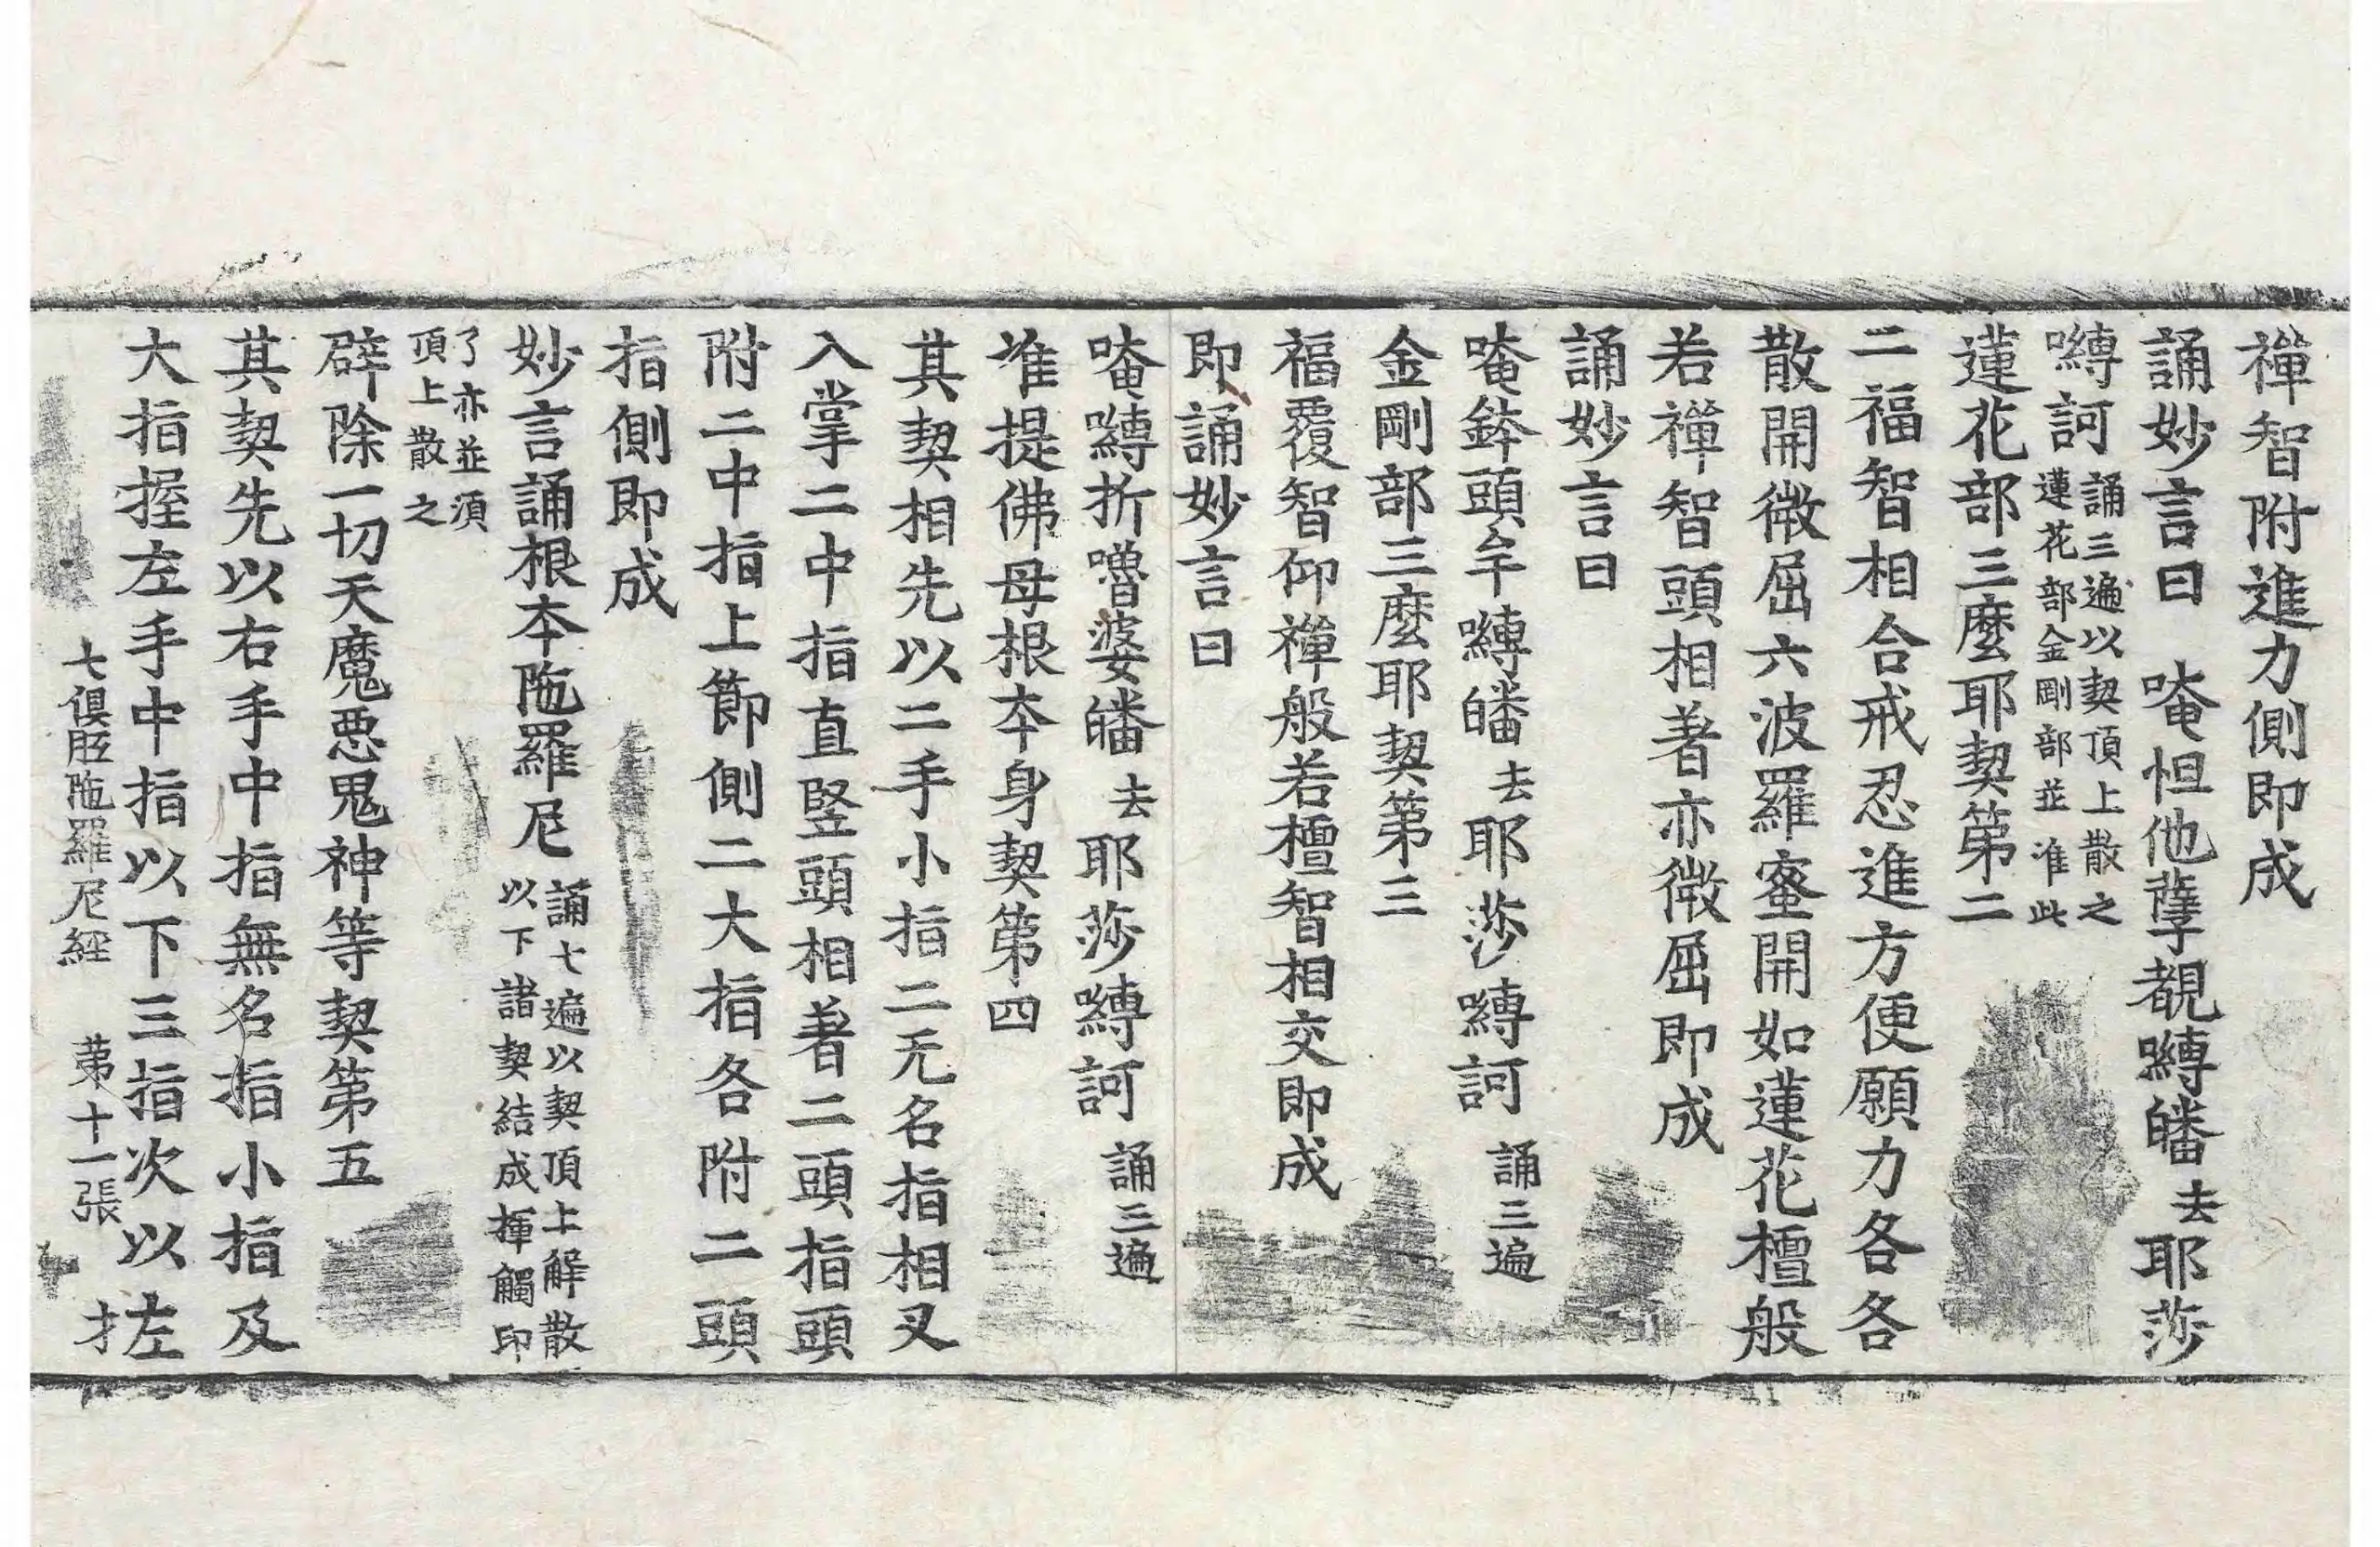 禪智附進力側即成
誦妙言曰　唵怛他蘖覩嚩皤去耶莎
嚩訶誦三遍以契頂上散之
蓮花部金剛部並准此
蓮花部三麽耶契第二
二福智相合戒忍進方便願力各各
散開微屈六波羅蜜開如蓮花檀般
若禪智頭相著亦微屈即成
誦妙言曰
唵鉢頭牟嚩皤去耶莎嚩訶誦三遍
金剛部三麽耶契第三
福覆智仰禪般若檀智相交即成
即誦妙言曰
唵嚩折嚕婆皤去耶莎嚩訶誦三遍
准提佛母根本身契第四
其契相先以二手小指二无名指相叉
入掌二中指直竪頭相著二頭指頭
附二中指上節側二大指各附二頭
指側即成
妙言誦根本陁羅尼誦七遍以契頂上解散
以下諸契結成揮觸印
了亦並須
頂上散之
辟除一切天魔悪鬼神等契第五
其契先以右手中指無名指小指及
大指握左手中指以下三指次以左
七俱胝陁羅尼經　第十一張　才